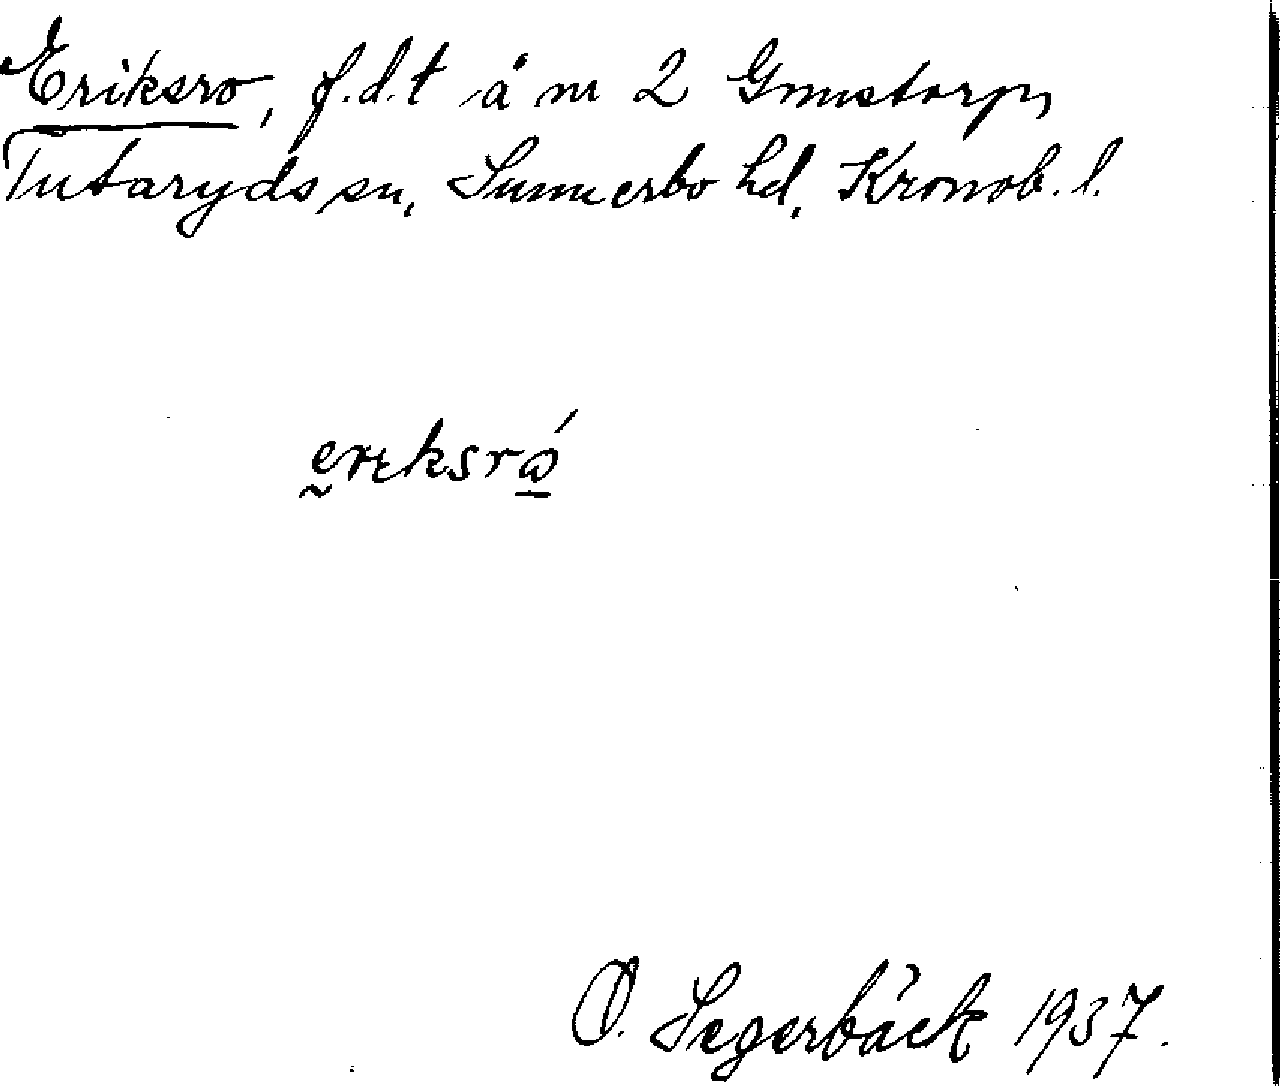 Eriksro, f.d.t å nr 2 Gnustorp,
Tutaryds sn, Sunnerbo hd, Kronob. l.
erıksrɷ́
O. Segerbäck 1937.